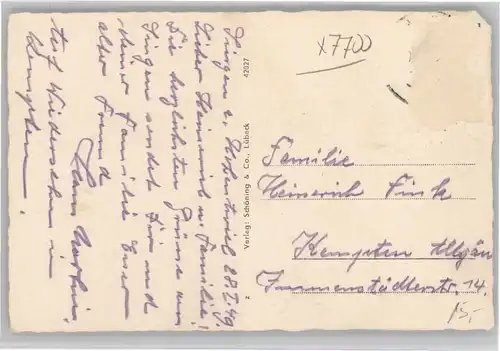 Singen a. Hohentwiel 28.I.49.
Lieber Heinrich u. Familie!
Die herzlichsten Grüsse von
Singen sendet Dir und
deiner Familie Euer
alter Freund
Hans Martin.
Auf Wiedersehen in
Kempten.
Verlag: Schöning & Co., Lübeck
42027
z
x7700
Familie
Heinerich Fink
Kempten Allgäu
Immenstädterstr. 14.
15,-